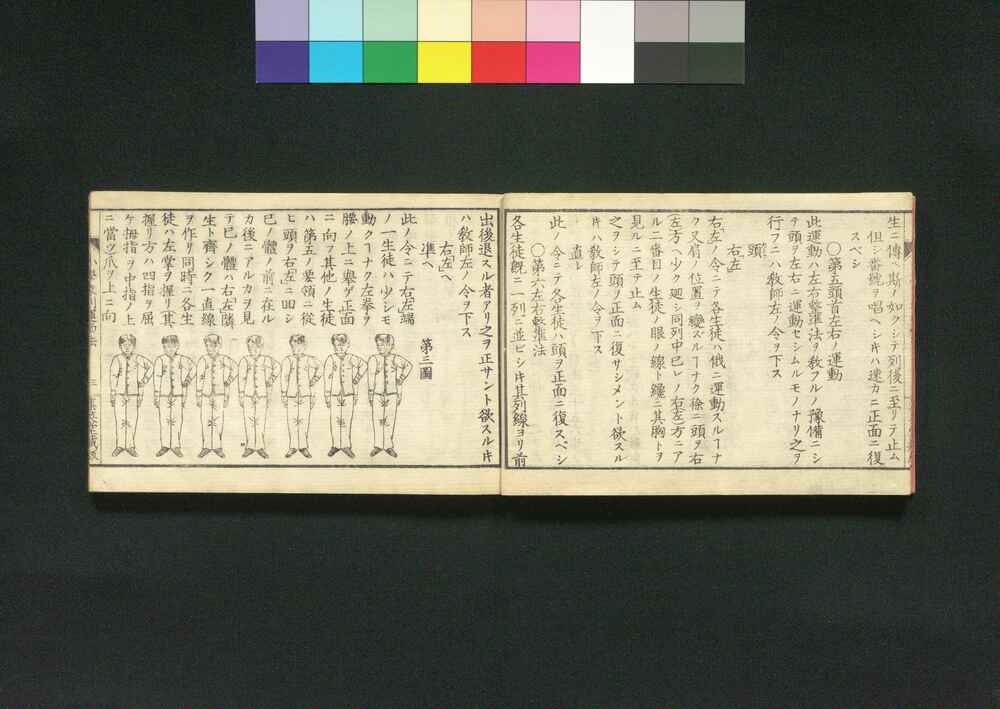 生ニ傳ヘ斯ノ如クシテ列後ニ至リテ止ム
但シ番號ヲ唱ヘシキハ速カニ正面ニ復
スベシ
〇第五頭首左右ノ運動
此運動ハ左右整準法ヲ教フルノ豫備ニシ
テ頭ヲ左右ニ運動セシムルモノナリ之ヲ
行フニハ教師左ノ令ヲ下ス
頭
右左
右(左)ノ令ニテ各生徒ハ俄ニ運動スルヿナ
ク又肩ノ位置ヲ變ズルヿナク徐ニ頭ヲ右
(左)方ヘ少ク廻シ同列中己レノ右(左)方ニア
ル二番目ト生徒ノ眼ノ線ト纔ニ其胸トヲ
見ルニ至テ止ム
之ヲシテ頭ヲ正面ニ復サシメント欲スル
キハ教師左ノ令ヲ下ス
直レ
此ノ令ニテ各生徒ハ頭ヲ正面ニ復スベシ
〇第六左右整準法
各生徒既ニ一列ニ並ビシキ其列線ヨリ前
出後退スル者アリ之ヲ正サント欲スルキ
ハ教師左ノ令ヲ下ス
右(左)ヘ
準ヘ
第三圖
此ノ令ニテ右(左)端
ノ一生徒ハ少シモ
動クヿナク左拳ヲ
腰ノ上ニ擧ゲ正面
ニ向フ其他ノ生徒
ハ第五ノ要領ニ從
ヒ頭ヲ右(左)ニ回シ
己ノ體ノ前ニ在ル
カ後ニアルカヲ見
テ己ノ體ハ右(左)隣
生ト齊シク一直線
ヲ作リ同時ニ各生
徒ハ左掌ヲ握リ(其
握リ方ハ四指ヲ屈
ケ拇指ヲ中指ノ上
ニ當ツ)爪ヲ上ニ向